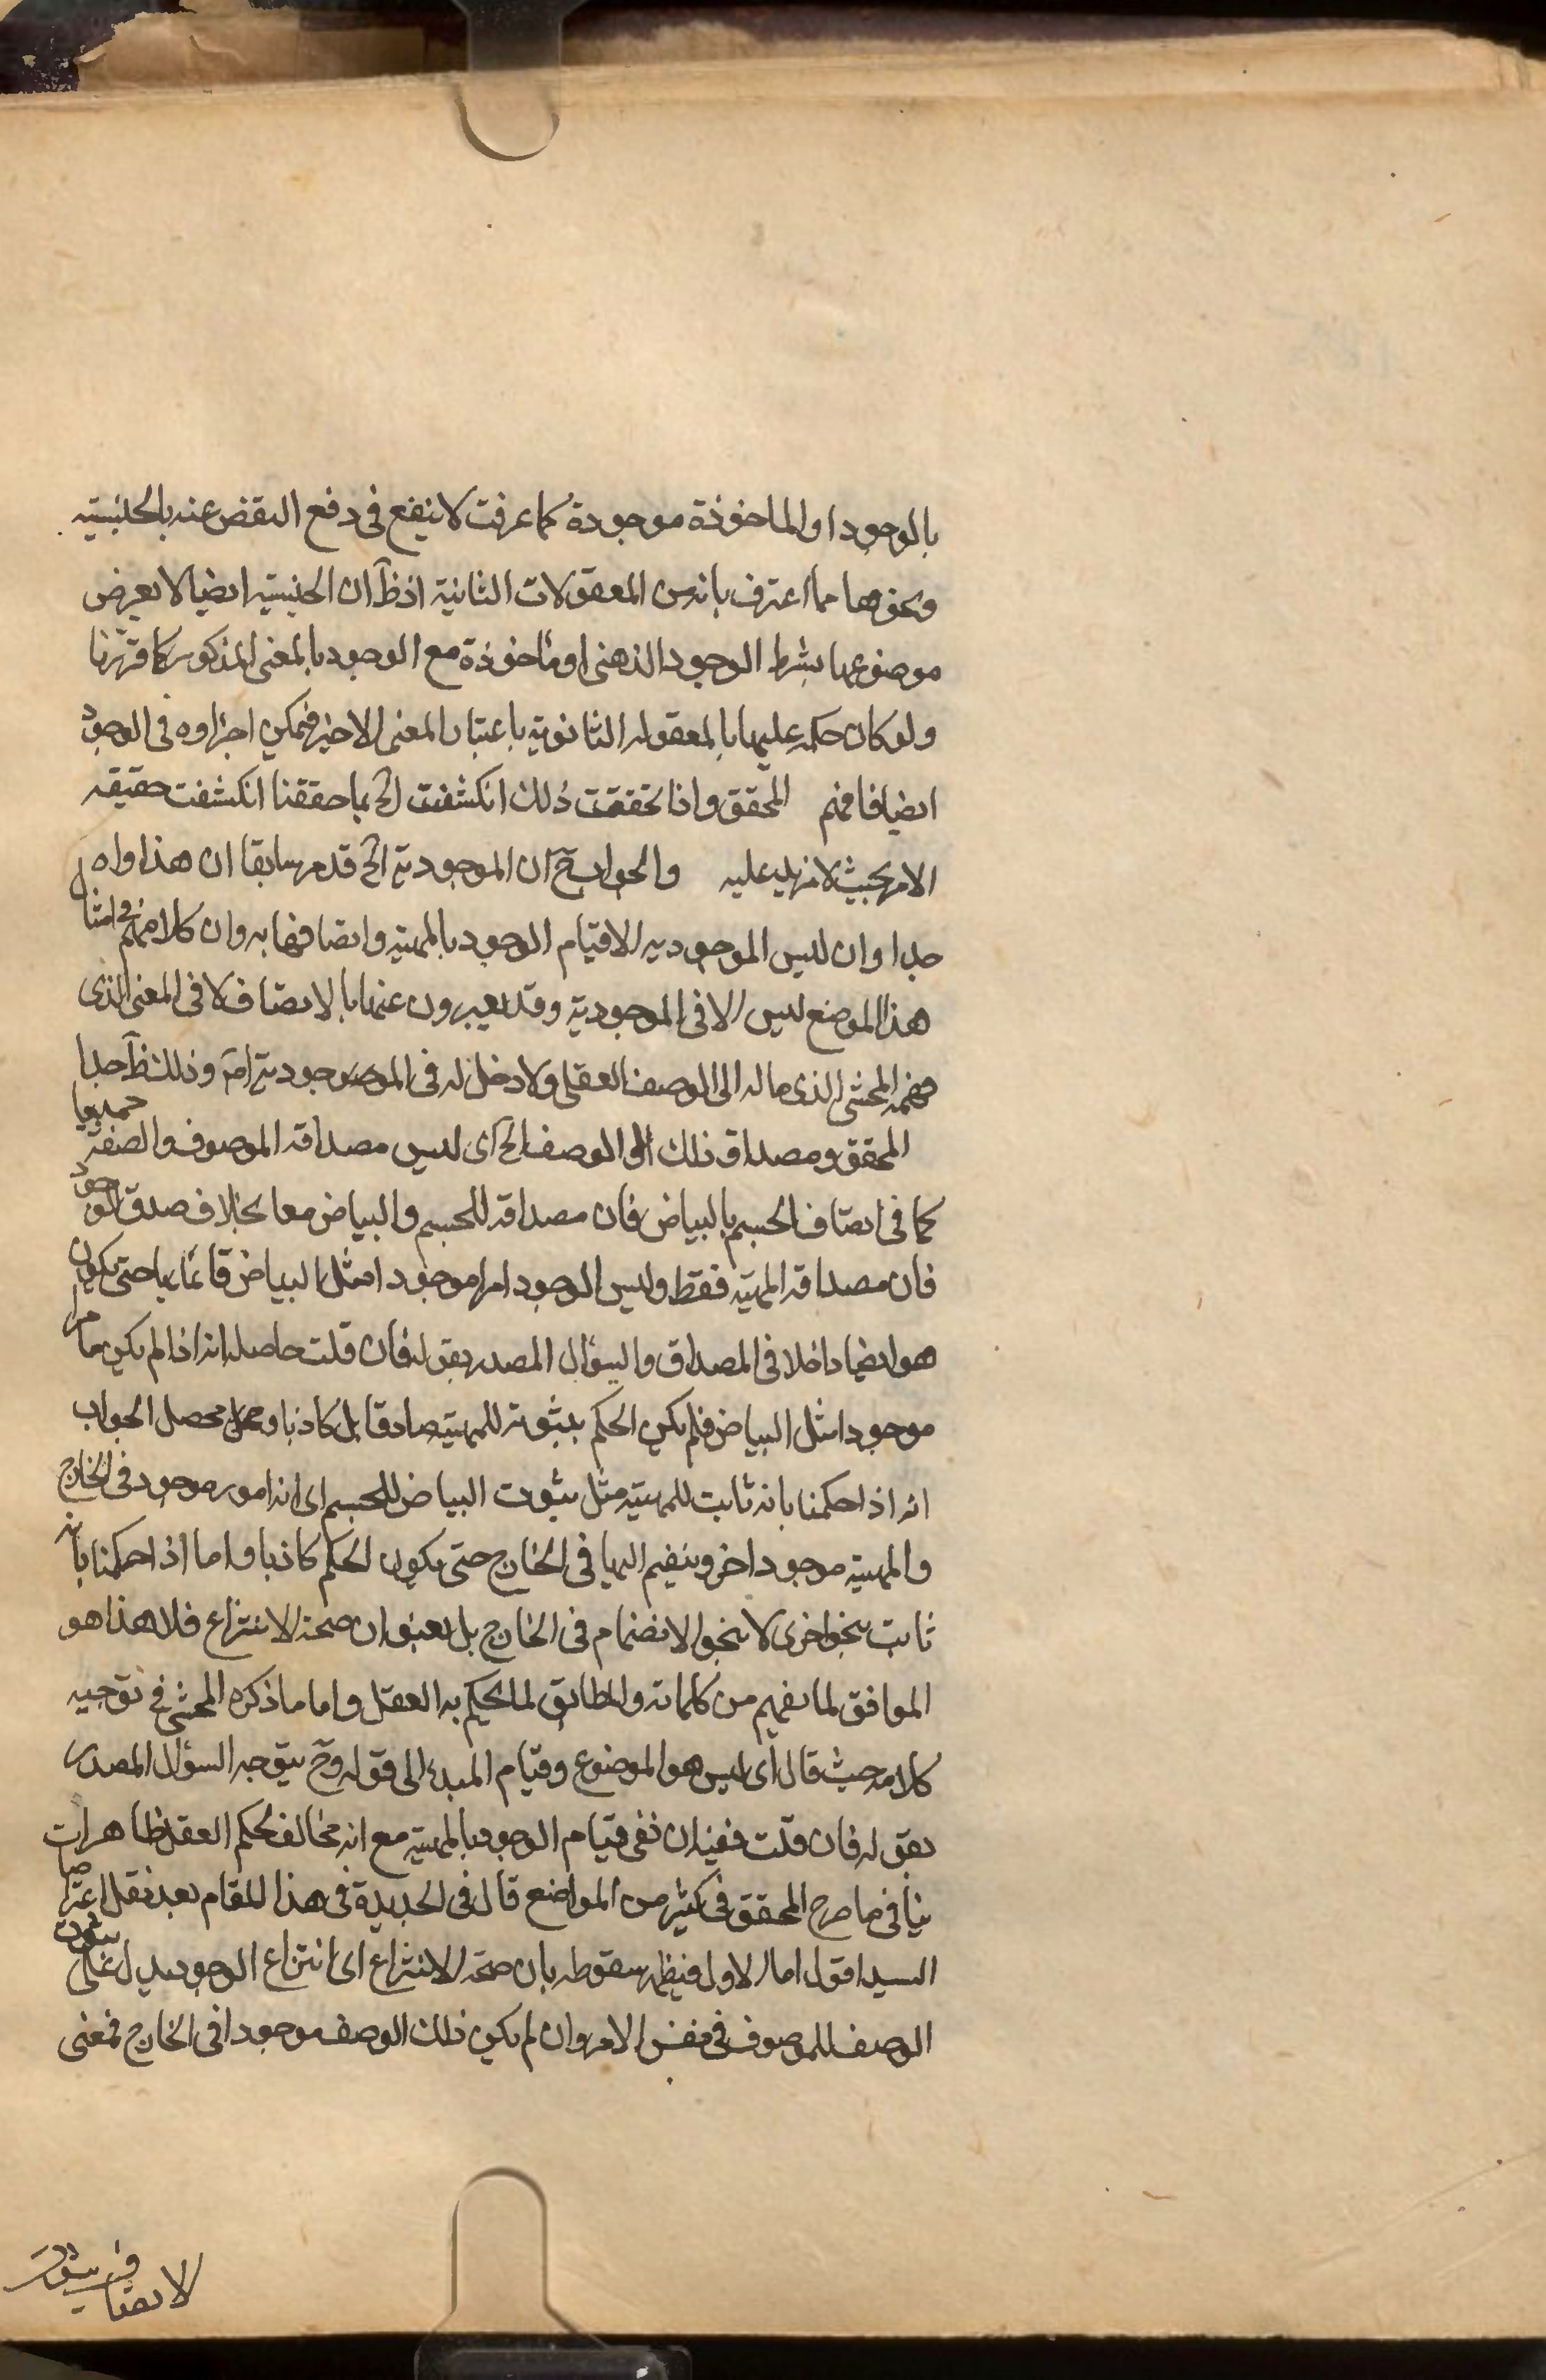 بالوجود او الماخوذة موجودة كما عرفت لا ينفع فى دفع النقض عنه بالجنسية
ونحوها مما اعترف بانه من المعقولات الثانية اذ ظ ان الجنسية ايضا لا يعرض
موضوعها بشرط الوجود الذهنى او ماخوذة مع الوجود بالمعنى المذكور كما قررنا
ولو كان حكمه عليها بالمعقوله الثانوية باعتبار المعنى الاخير فيمكن اجراوه فى الوجود
ايضا فافهم المحقق واذا تحققت ذلك انكشفت الخ بما حققنا انكشفت حقيقه
الامر بحيث لا مزيد عليه والجواب ح ان الموجودية الخ قد مر سابقا ان هذا واه
جدا وان ليس الموجوديه الا قيام الوجود بالمهية واتصافها به وان كلامهم فى امثال
هذا الموضع ليس الا فى الموجودية وقد يعبرون عنها بالاتصاف لا فى المعنى الذى
فهمه المحشى الذى ماله الى الوصف العقلى ولا دخل له فى الموجودية اصلا وذلك ظ جدا
المحقق ومصداق ذلك الوصف الخ اى ليس مصداقه الموصوف والصفة جميعا
كما فى اتصاف الجسم بالبياض فان مصداقه الجسم والبياض معا بخلاف صدق الوجود
فان مصداقه المهية فقط وليس الوجود امرا موجودا مثل البياض قائما بها حتى يكون
هو ايضا داخلا فى المصداق والسؤال المصدر بقوله فان قلت حاصله انه اذا لم يكن امرا
موجودا مثل البياض فلم يكن الحكم بثبوته للمهية صادقا بل كاذبا ومحصل الجواب
انه اذا حكمنا بانه ثابت للمهية مثل ثبوت البياض للجسم اى انه امور موجود فى الخارج
والمهية موجود اخر وينضم اليها فى الخارج حتى يكون الحكم كاذبا واما اذا حكمنا بانه
ثابت بنحو اخرى لا بنحو الانضمام فى الخارج بل بعنوان صحة الانتزاع فلا هذا هو
الموافق لما يفهم من كلماته والمطابق لما يحكم به العقل واما ما ذكره المحشى فى توجيه
كلامه حيث قال اى ليس هو الموضوع وقيام المبدء الى قوله وح يتوجه السؤال المصدر
بقوله فان قلت ففيه ان نفى قيام الوجود بالمهية مع انه مخالف لحكم العقل ظاهرات
ينافى ما صرح المحقق فى كثير من المواضع قال فى الجديدة فى هذا المقام بعد نقل اعتراضات
السيد اقول اما الاول فيظهر سقوطه بان صحة الانتزاع اى انتزاع الوجود يدل على ثبوت
الوصف للموصوف فى نفس الامر وان لم يكن ذلك الوصف موجودا فى الخارج فمعنى
الاتصاف ثبوت